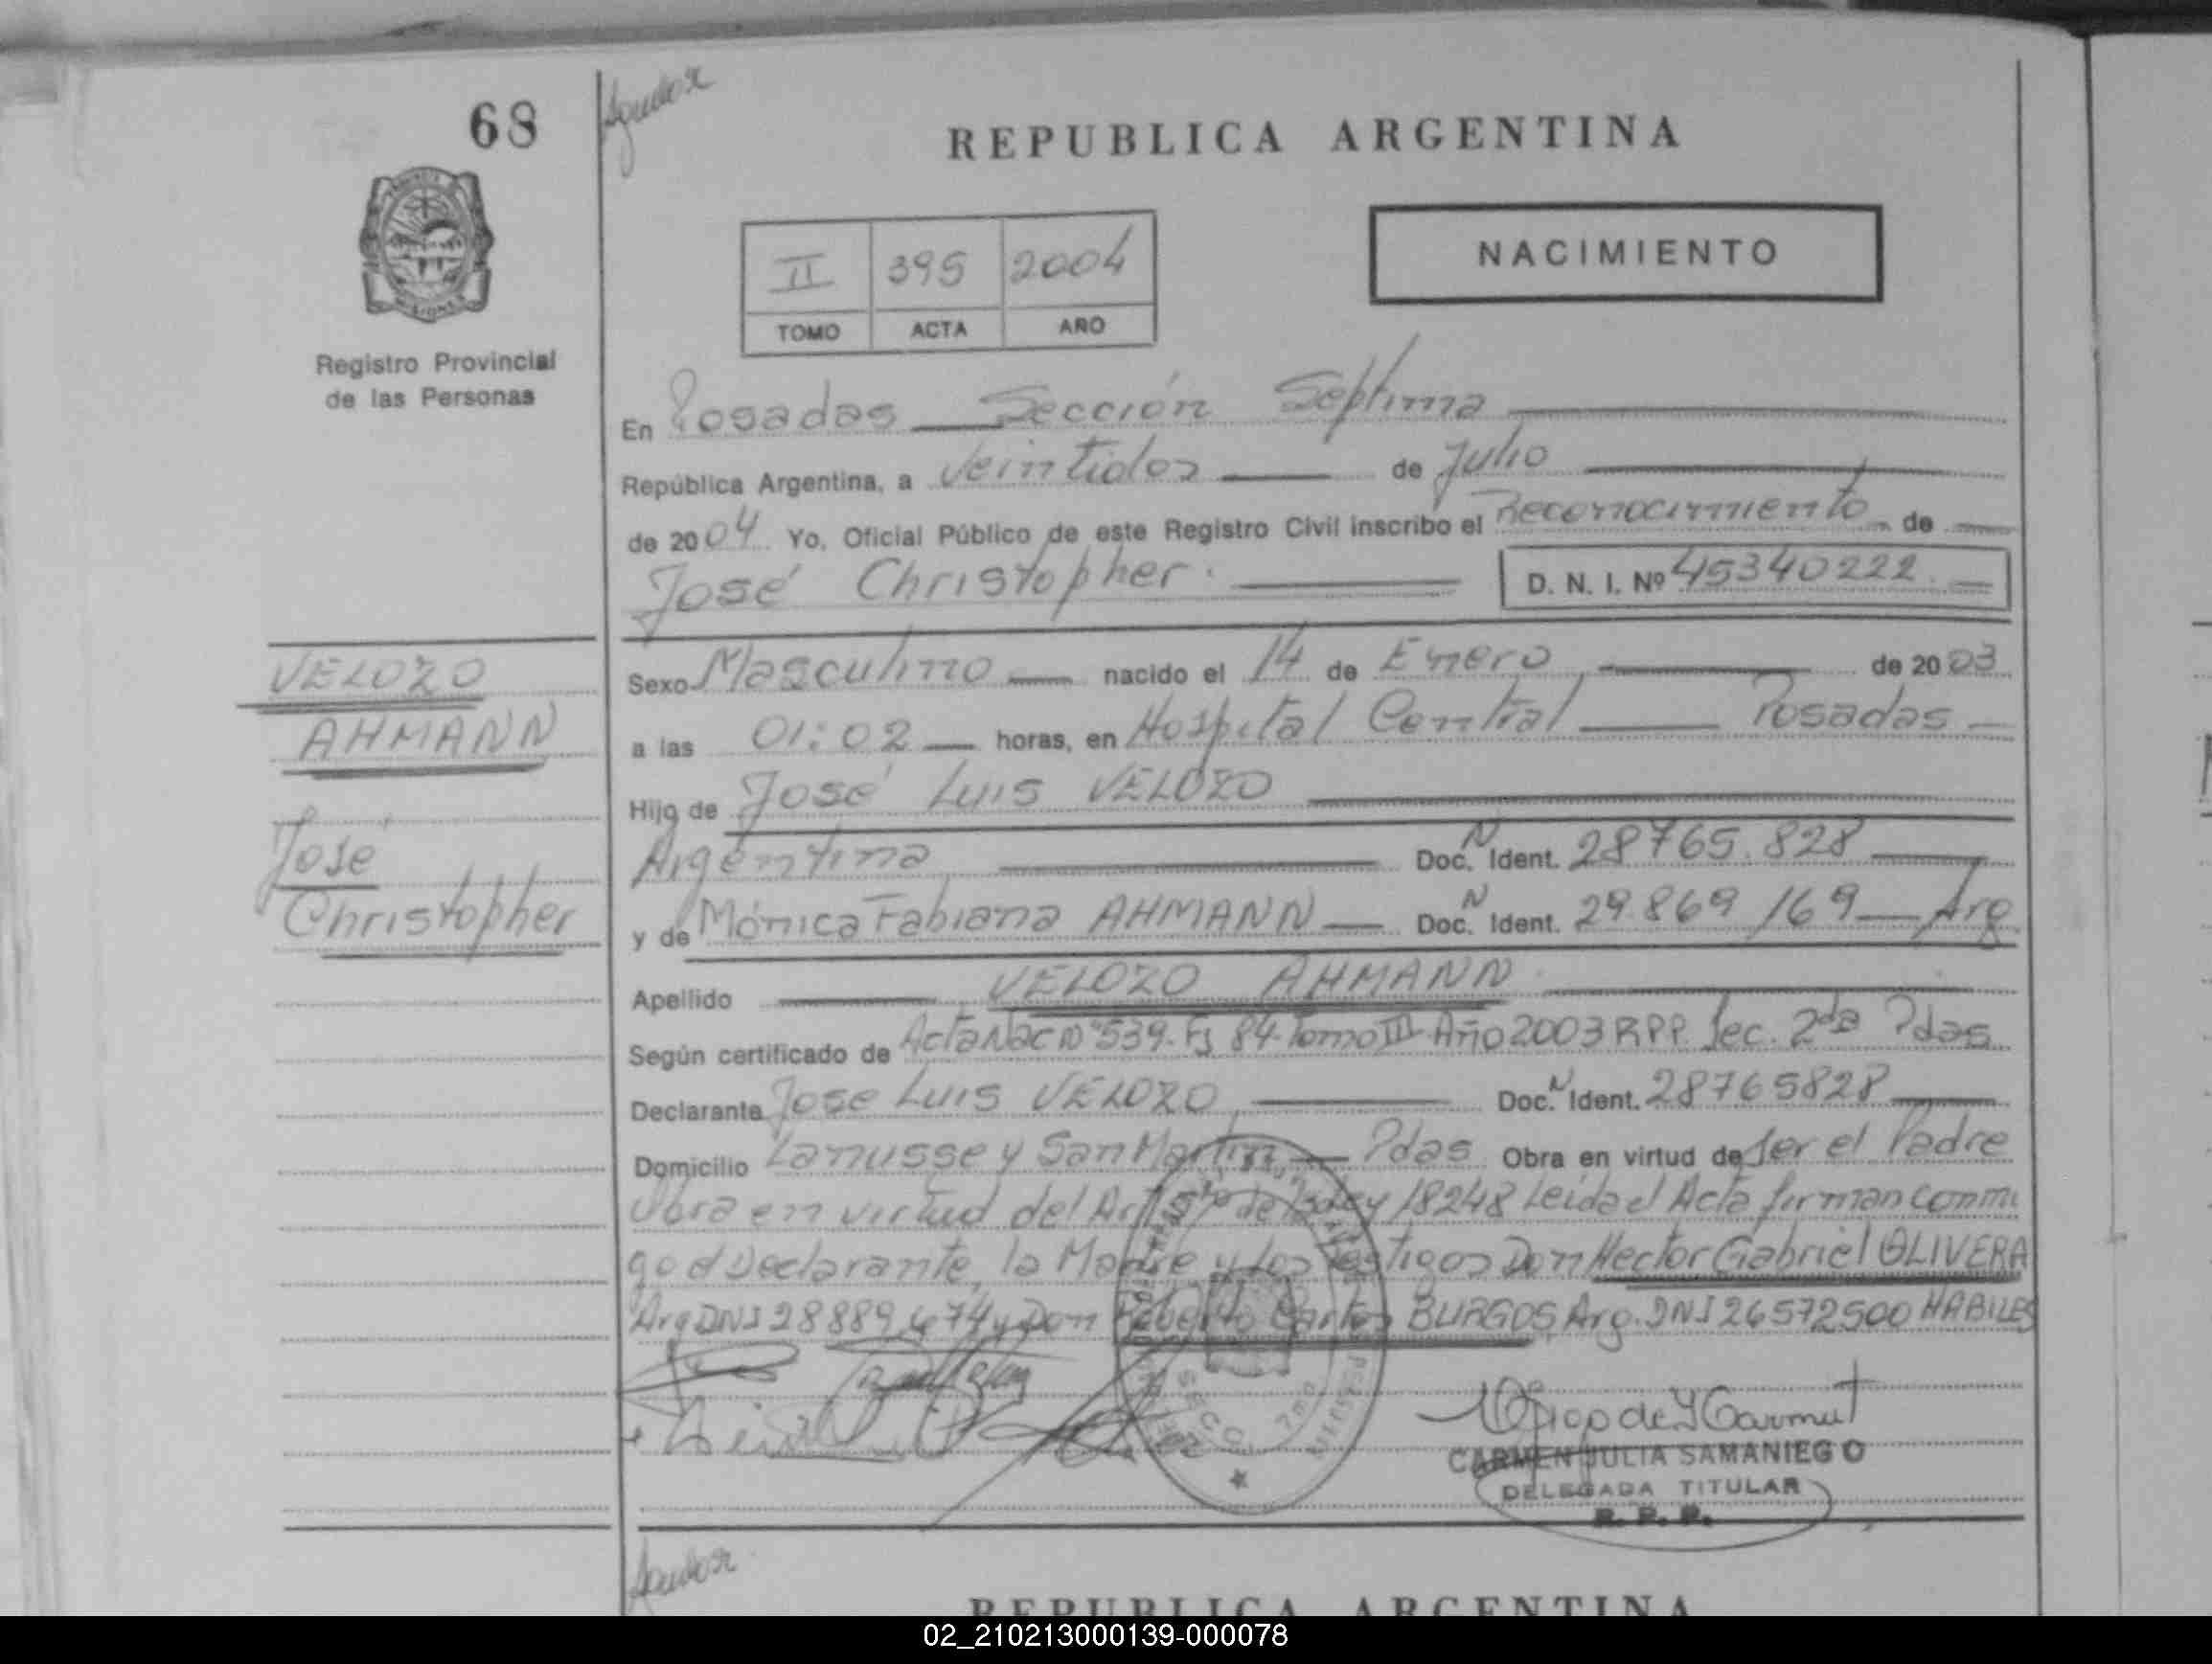 68
REPUBLICA ARGENTINA
NACIMIENTO
II 395 2004
TOMO ACTA AÑO
Registro Provincial
de las Personas
En Posadas Sección Septima
República Argentina, a Veintidos de Julio
de 2004 Yo, Oficial Público de este Registro Civil inscribo el Reconocimiento de
José Christopher. D. N. I. Nº 45340222
VELOZO
AHMANN
José
Christopher
Sexo Masculino nacido el 14 de Enero de 2003
a las 01:02 horas, en Hospital Central Posadas
Hijo de José Luis VELOZO
Argentina Doc. N Ident. 28765.828
y de Mónica Fabiana AHMANN Doc. N Ident. 29.869/169 Arg
Apellido VELOZO AHMANN
Según certificado de Acta Nac Nº 539. Fj 84. Tomo III Año 2003 RPP. Sec. 2da Pdas
Declarante Jose Luis VELOZO Doc. N Ident. 28765828
Domicilio Lanusse y San Martín Pdas Obra en virtud de Ser el Padre
Obra en virtud del Art de la Ley 18248 Leida el Acta firman conmi
go el Declarante, la Madre y los Testigos Don Hector Gabriel OLIVERA
Arg DNI 28889674 y Don Roberto Carlos BURGOS Arg. DNI 26572500 HABILES
SECC. 7ma
CARMEN JULIA SAMANIEGO
DELEGADA TITULAR
R. P. P.
REPUBLICA ARGENTINA
02_210213000139-000078